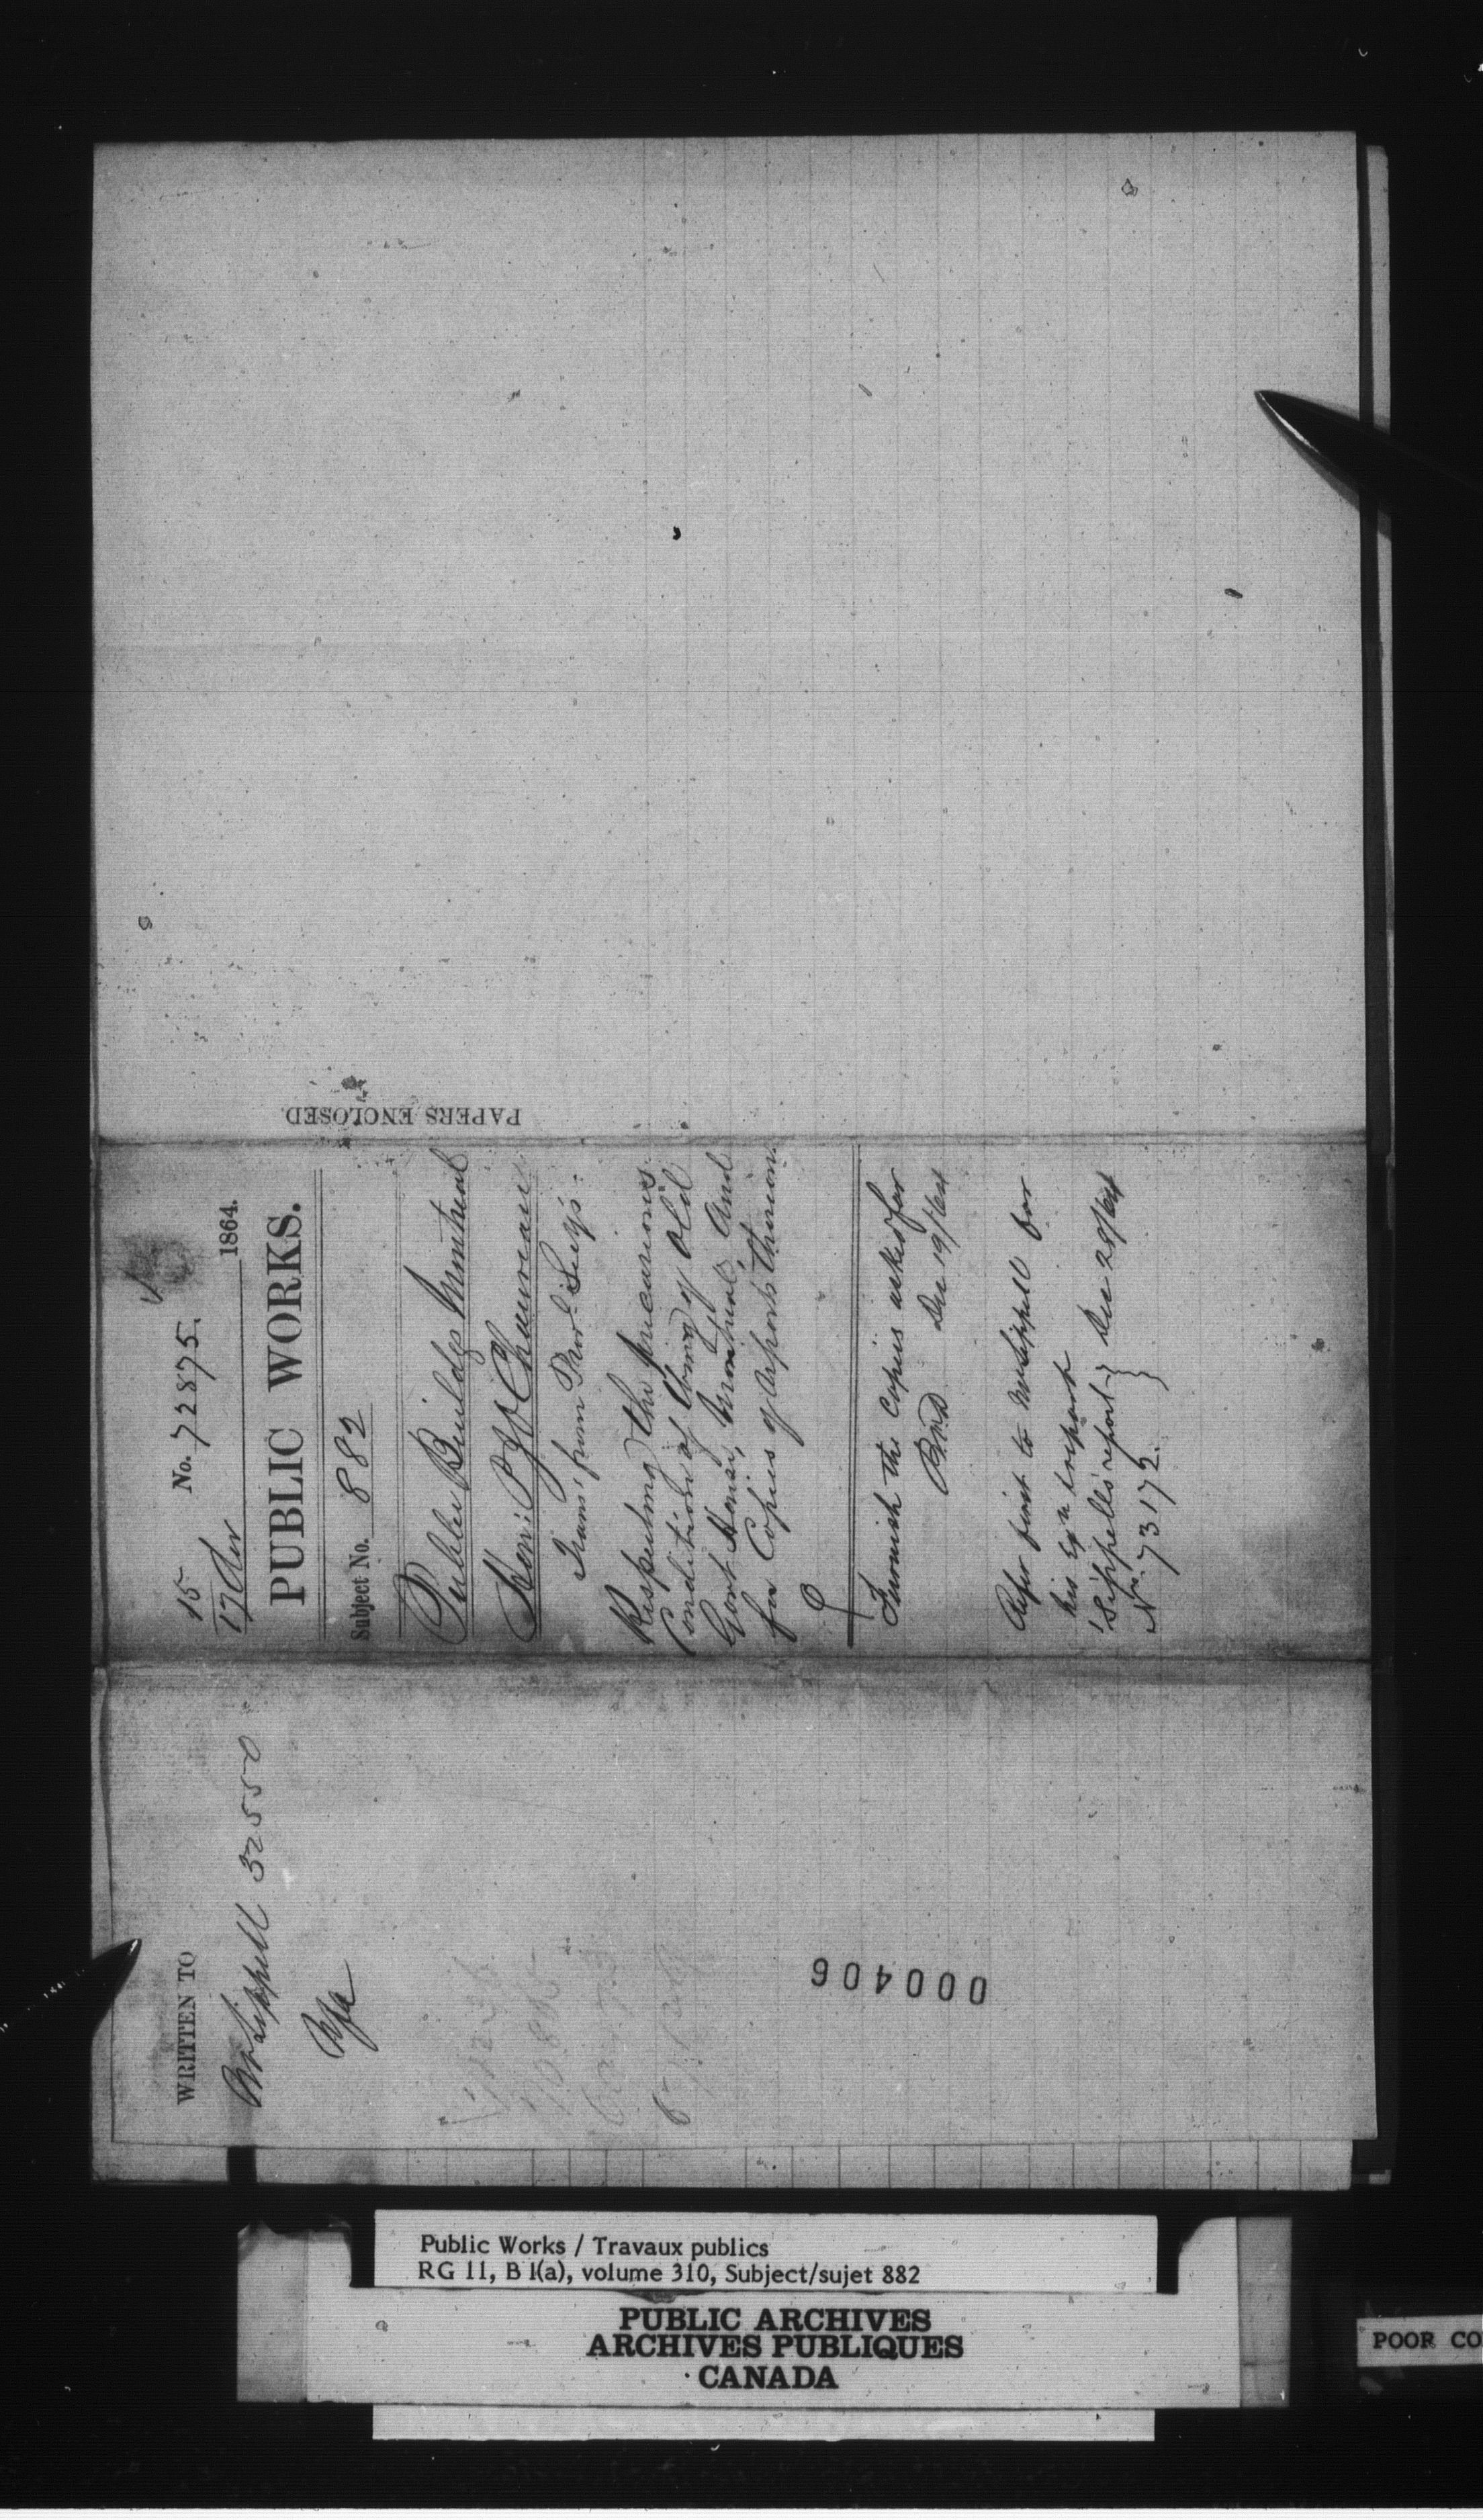 No. 72875.
15
17 Decr 1864.
PUBLIC WORKS.
Subject No. 882
Public Buildgs Montreal
Hon: P J O Chauveau
Trans' from Prov'l Sec'y's.
Respecting the precarious
Condition of Owing of Old
Govt House, Montreal, and
for Copies of reports thereon.
Furnish the Copies asked for
Dec 19/64
Refer first to Mr Sippell for
his report
Sippell's report } Dec 28/64
No. 73172.
PAPERS ENCLOSED
WRITTEN TO
Mr Sippell 32550
000406
Public Works / Travaux publics
RG 11, B 1(a), volume 310, Subject/sujet 882
PUBLIC ARCHIVES
ARCHIVES PUBLIQUES
CANADA
POOR CO